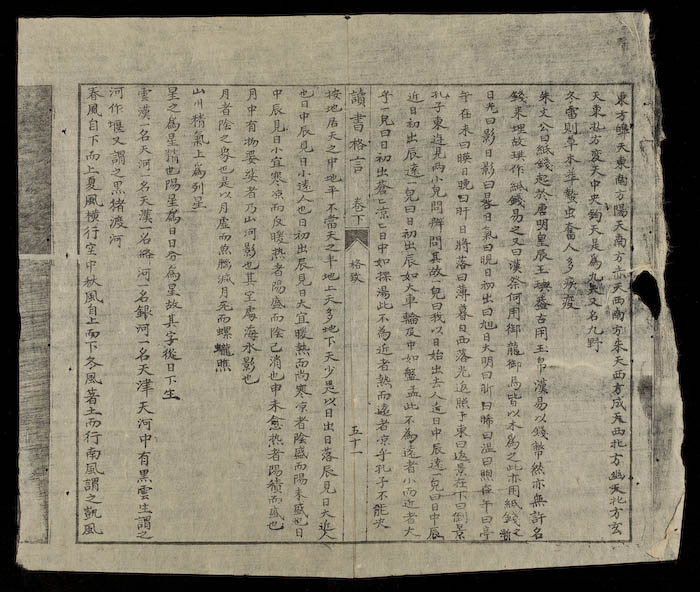 東方皞天東南方陽天南方赤天西南方朱天西方成天西北方幽天北方玄
天東北方変天中央鈞天是為九天又名九野
冬雷則草木萍蟄虫奮人多疾疫
朱文公曰紙錢起於唐明皇辰王璵盖古用玉帛漢易以錢幣然亦無許名
錢来埋故璵作紙錢易之又曰漢祭何用御龍御馬皆以木為之此亦用紙錢之漸
日光曰影日影曰晷日氣曰晛日初出曰旭日大明曰昕曰晞曰温曰照在午曰亭
午在未曰昳日晚曰旰日將落曰薄暮日西落光返照下東曰返景在下曰倒景
孔子東遊見両小兒問辯問其故一兒曰我以日始出去人近日中辰遠一兒曰日中辰
近日初出辰遠一兒曰日初出辰如大車輪及中如盤盂此不為遠者小而近者大
乎一兒曰日初出蒼〻凉〻日中如探湯此不為近者熱而遠者凉乎孔子不能决
讀書格言 卷下 格致 五十一
按地居天之中地平不當天之半地上天多地下天少是以日出日落辰見日大近人
也日中辰見日小遠人也日初出辰見日大宜暖熱而尚寒凉者陰盛而陽未盛也日
中辰見日小宜寒凉而反暖熱者陽盛而陰已消也申未愈熱者陽積而盛也
月中有物婆娑者乃山河影也其空處海水影也
月者陰之象也是以月虚而魚腦减月死而螺蠬瞧
山川精氣上為列星
星之為星精也陽星為日日分為星故其字從日下生
雲漢一名天河一名天漢一名銀河一名天津天河中有黑雲生謂之
河作堰又謂之黑猪渡河
春風自下而上夏風横行空中秋風自上而下冬風著土而行南風謂之凱風